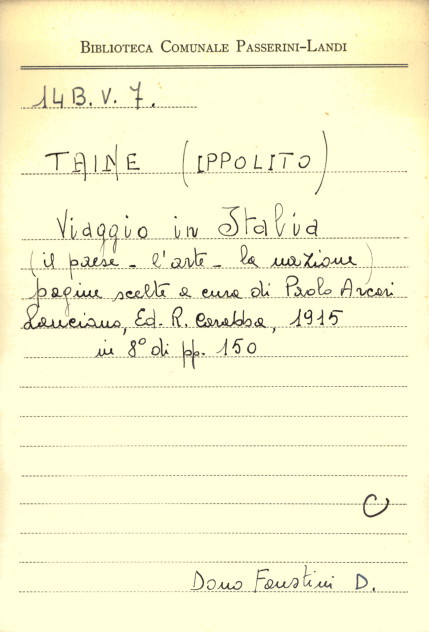 BIBLIOTECA COMUNALE PASSERINI-LANDI
14 B. V. 7.
TAINE (IPPOLITO)
Viaggio in Italia
(il paese - l'arte - la nazione)
pagine scelte a cura di Paolo Arcari
Lanciano, Ed. R. Carabba, 1915
in 8° di pp. 150
C
Dono Faustini D.